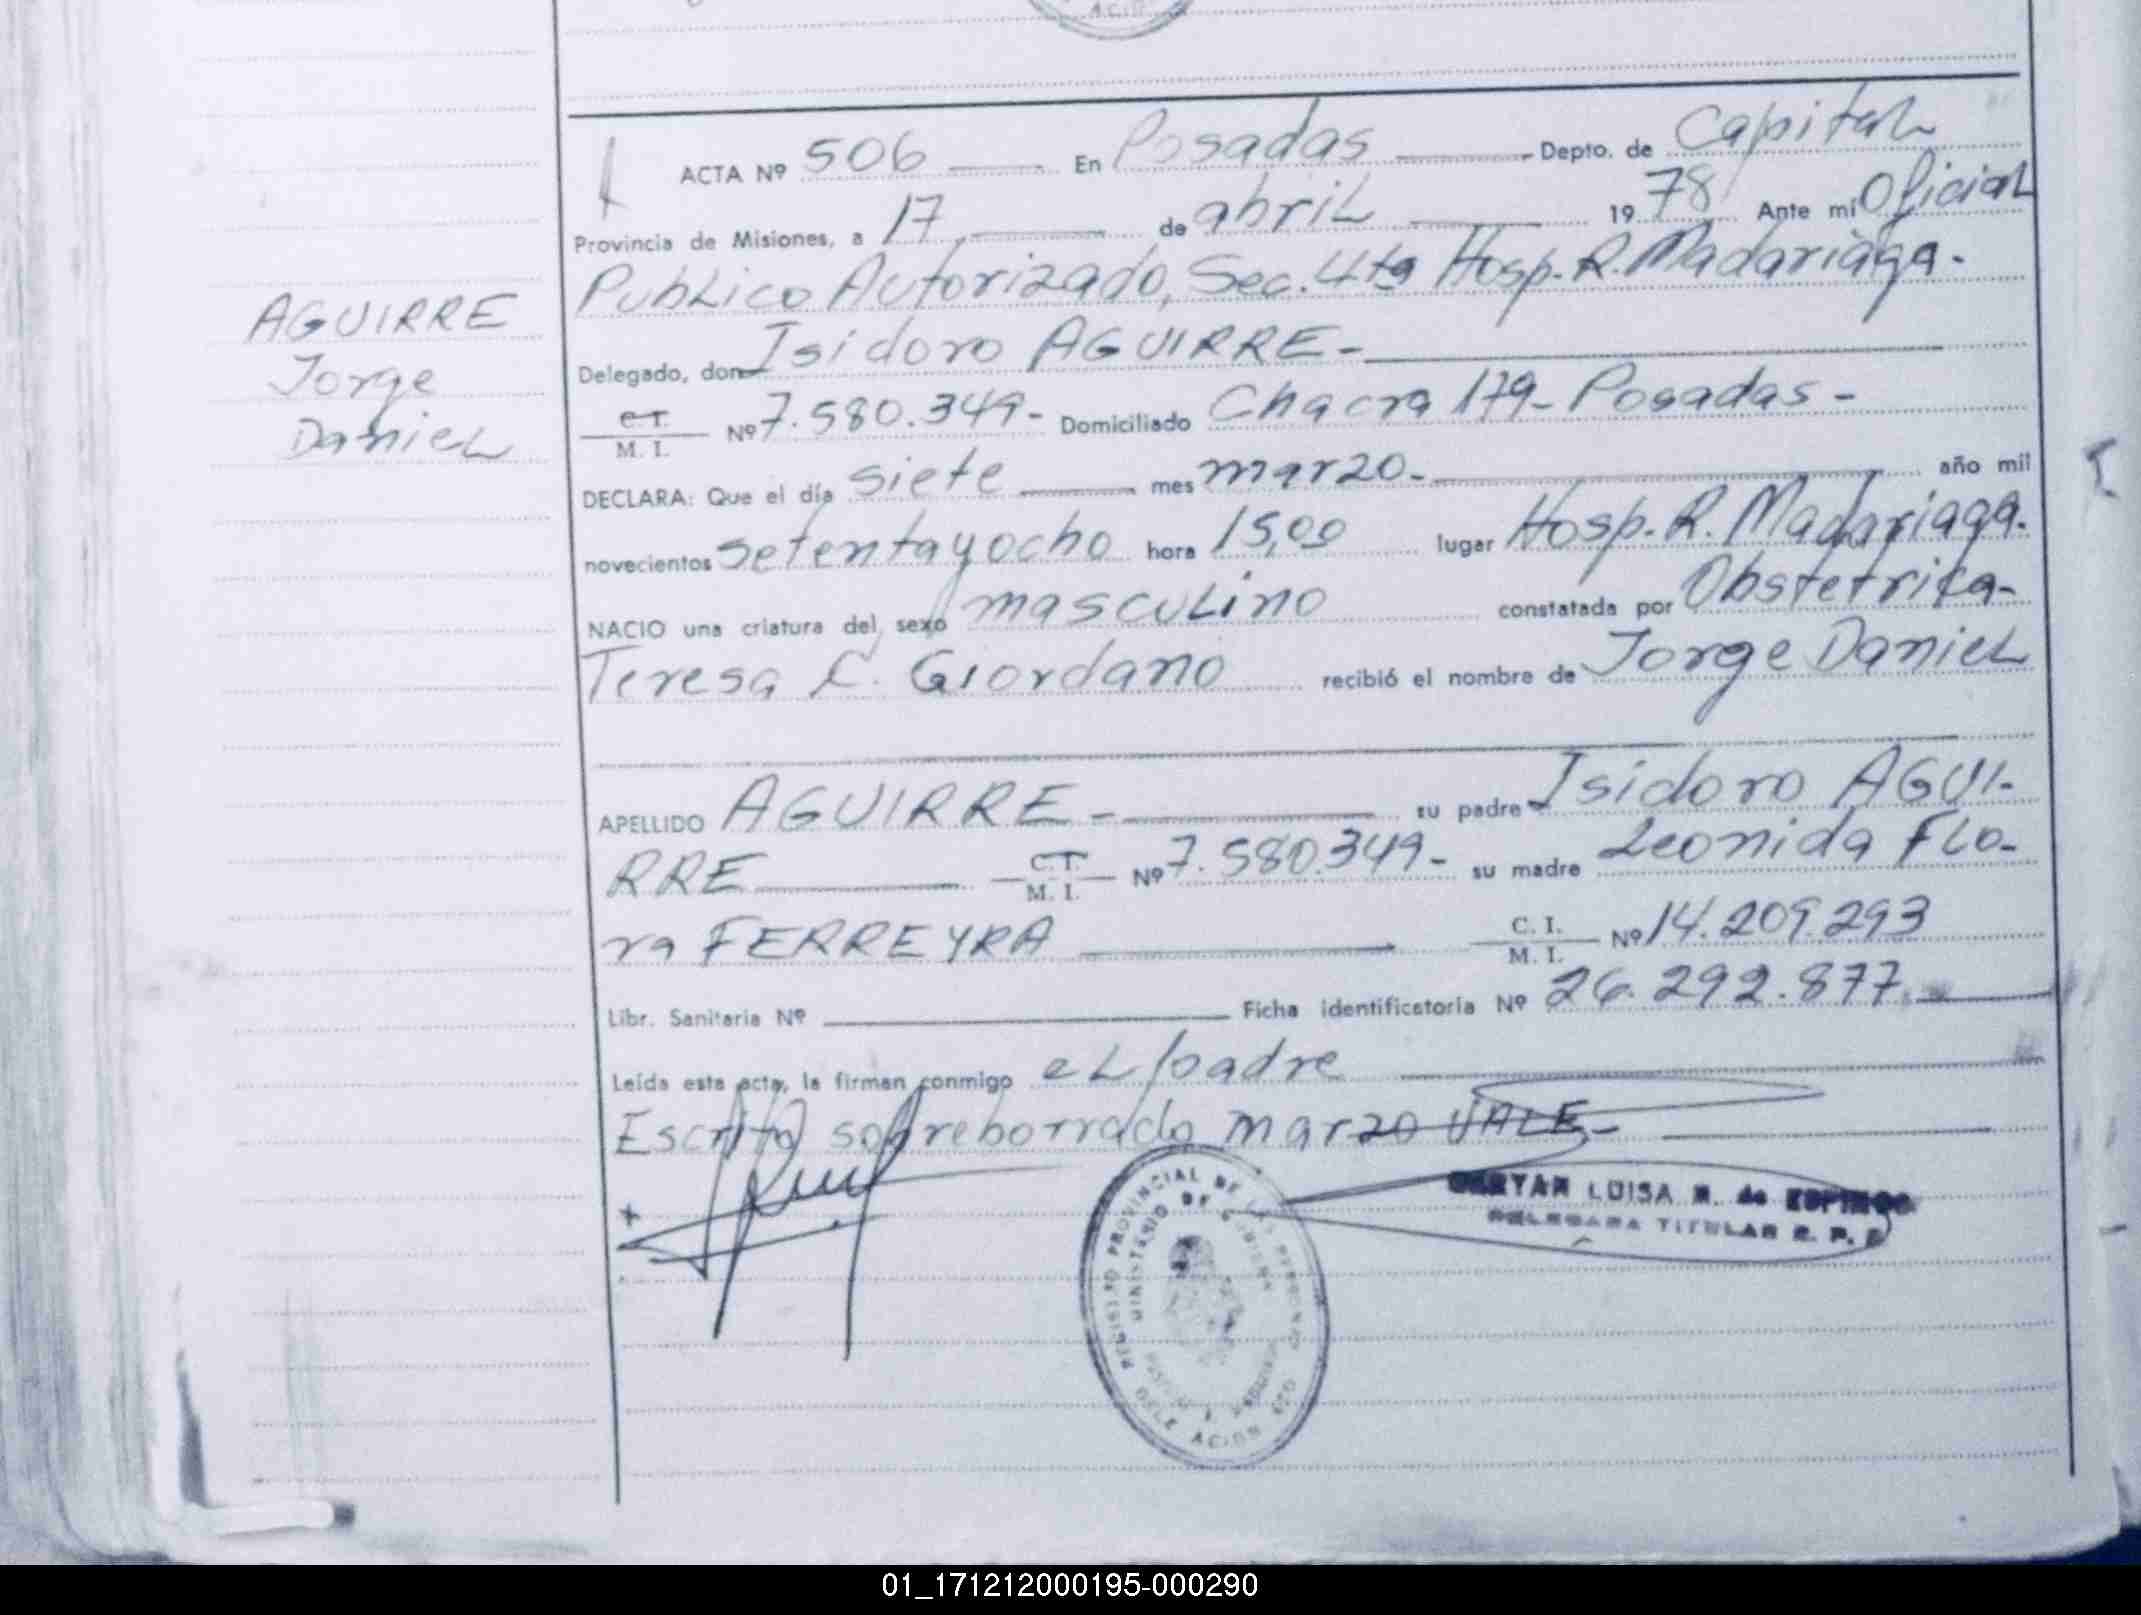 ACTA Nº 506 En Posadas Depto. de Capital
Provincia de Misiones, a 17 de abril 1978 Ante mí Oficial
Publico Autorizado, Sec. 4ta Hosp. R. Madariaga.
Delegado, don Isidoro AGUIRRE -
C. I. / M. I. Nº 7.580.349- Domiciliado Chacra 179- Posadas -
DECLARA: Que el día siete mes marzo- año mil
novecientos setentayocho hora 15,00 lugar Hosp. R. Madariaga.
NACIO una criatura del sexo masculino constatada por Obstetrika-
Teresa C. Giordano recibió el nombre de Jorge Daniel
APELLIDO AGUIRRE - su padre Isidoro AGUI-
RRE C. I. / M. I. Nº 7.580.349- su madre Leonida Flo-
ra FERREYRA C. I. / M. I. Nº 14.209.293
Libr. Sanitaria Nº Ficha identificatoria Nº 26.292.877.
Leída esta acta, la firman conmigo el padre
Escrito sobreborrado marzo VALE-
AGUIRRE
Jorge
Daniel
LUISA de
TITULAR R. P.
REGISTRO PROVINCIAL DE LAS PERSONAS
MINISTERIO DE GOBIERNO
ACION
01_171212000195-000290